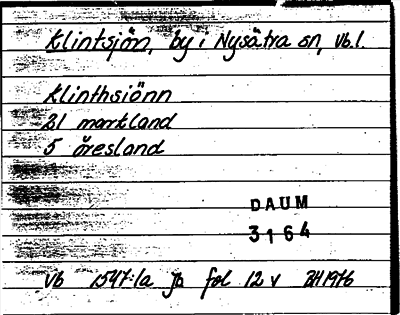 Klintsjön, by i Nysätra sn, Vb.l.
Klinthsiönn
21 markland
5 öresland
DAUM
3164
Vb 1547:1a Jb fol 12 v BH1976